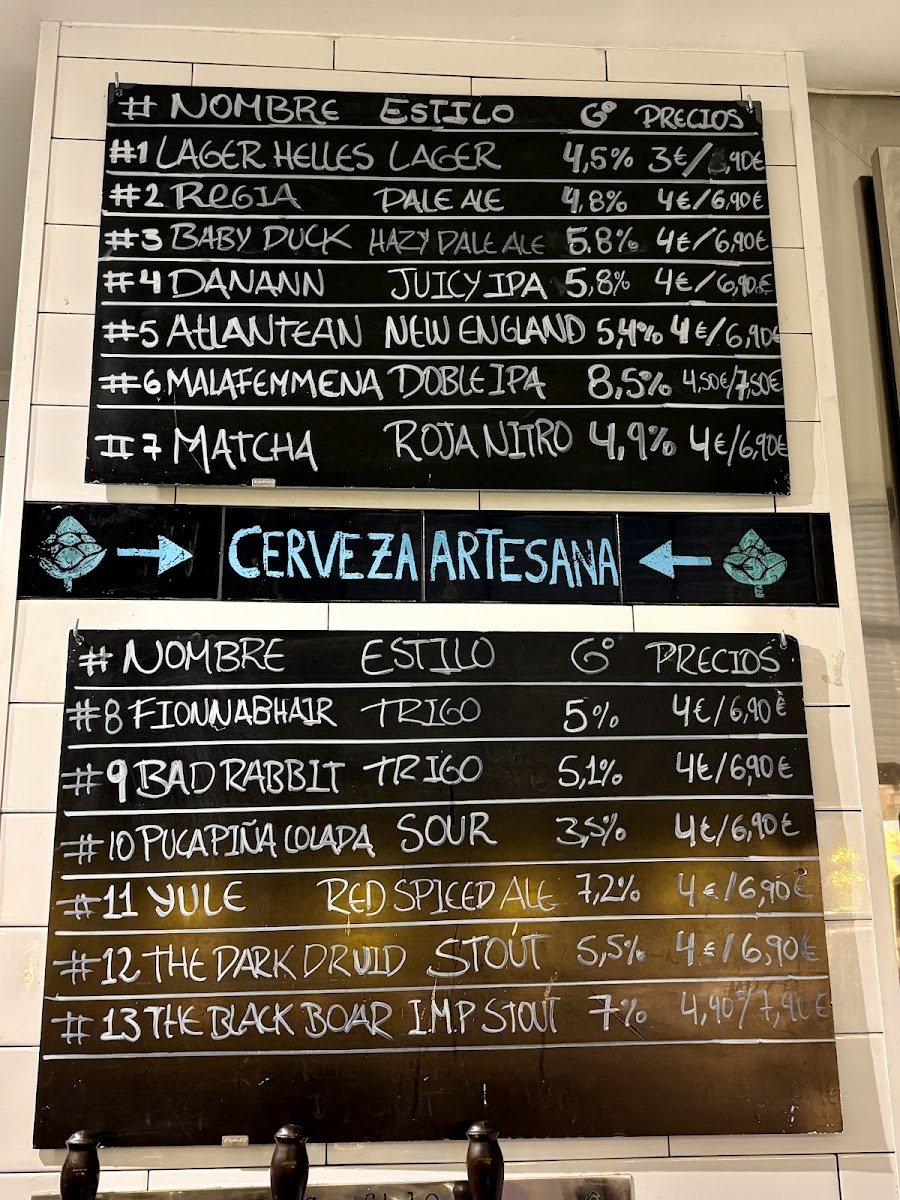 # NOMBRE ESTILO G° PRECIOS
#1 LAGER HELLES LAGER 4,5% 3€/
#2 REGIA PALE ALE 4,8% 4€/6,90€
#3 BABY DUCK HAZY PALE ALE 5,8% 4€/6,90€
#4 DANANN JUICY IPA 5,8% 4€/6,90€
#5 ATLANTEAN NEW ENGLAND 5,4% 4€/6,90€
#6 MALAFEMMENA DOBLE IPA 8,5% 4,50€/7,50€
#7 MATCHA ROJA NITRO 4,9% 4€/6,90€
CERVEZA ARTESANA
# NOMBRE ESTILO G° PRECIOS
#8 FIONNABHAIR TRIGO 5% 4€/6,90€
#9 BAD RABBIT TRIGO 5,1% 4€/6,90€
#10 PUCAPIÑA COLADA SOUR 3,5% 4€/6,90€
#11 YULE RED SPICED ALE 7,2% 4€/6,90€
#12 THE DARK DRUID STOUT 5,5% 4€/6,90€
#13 THE BLACK BOAR IMP STOUT 7% 4,90€/7,90€